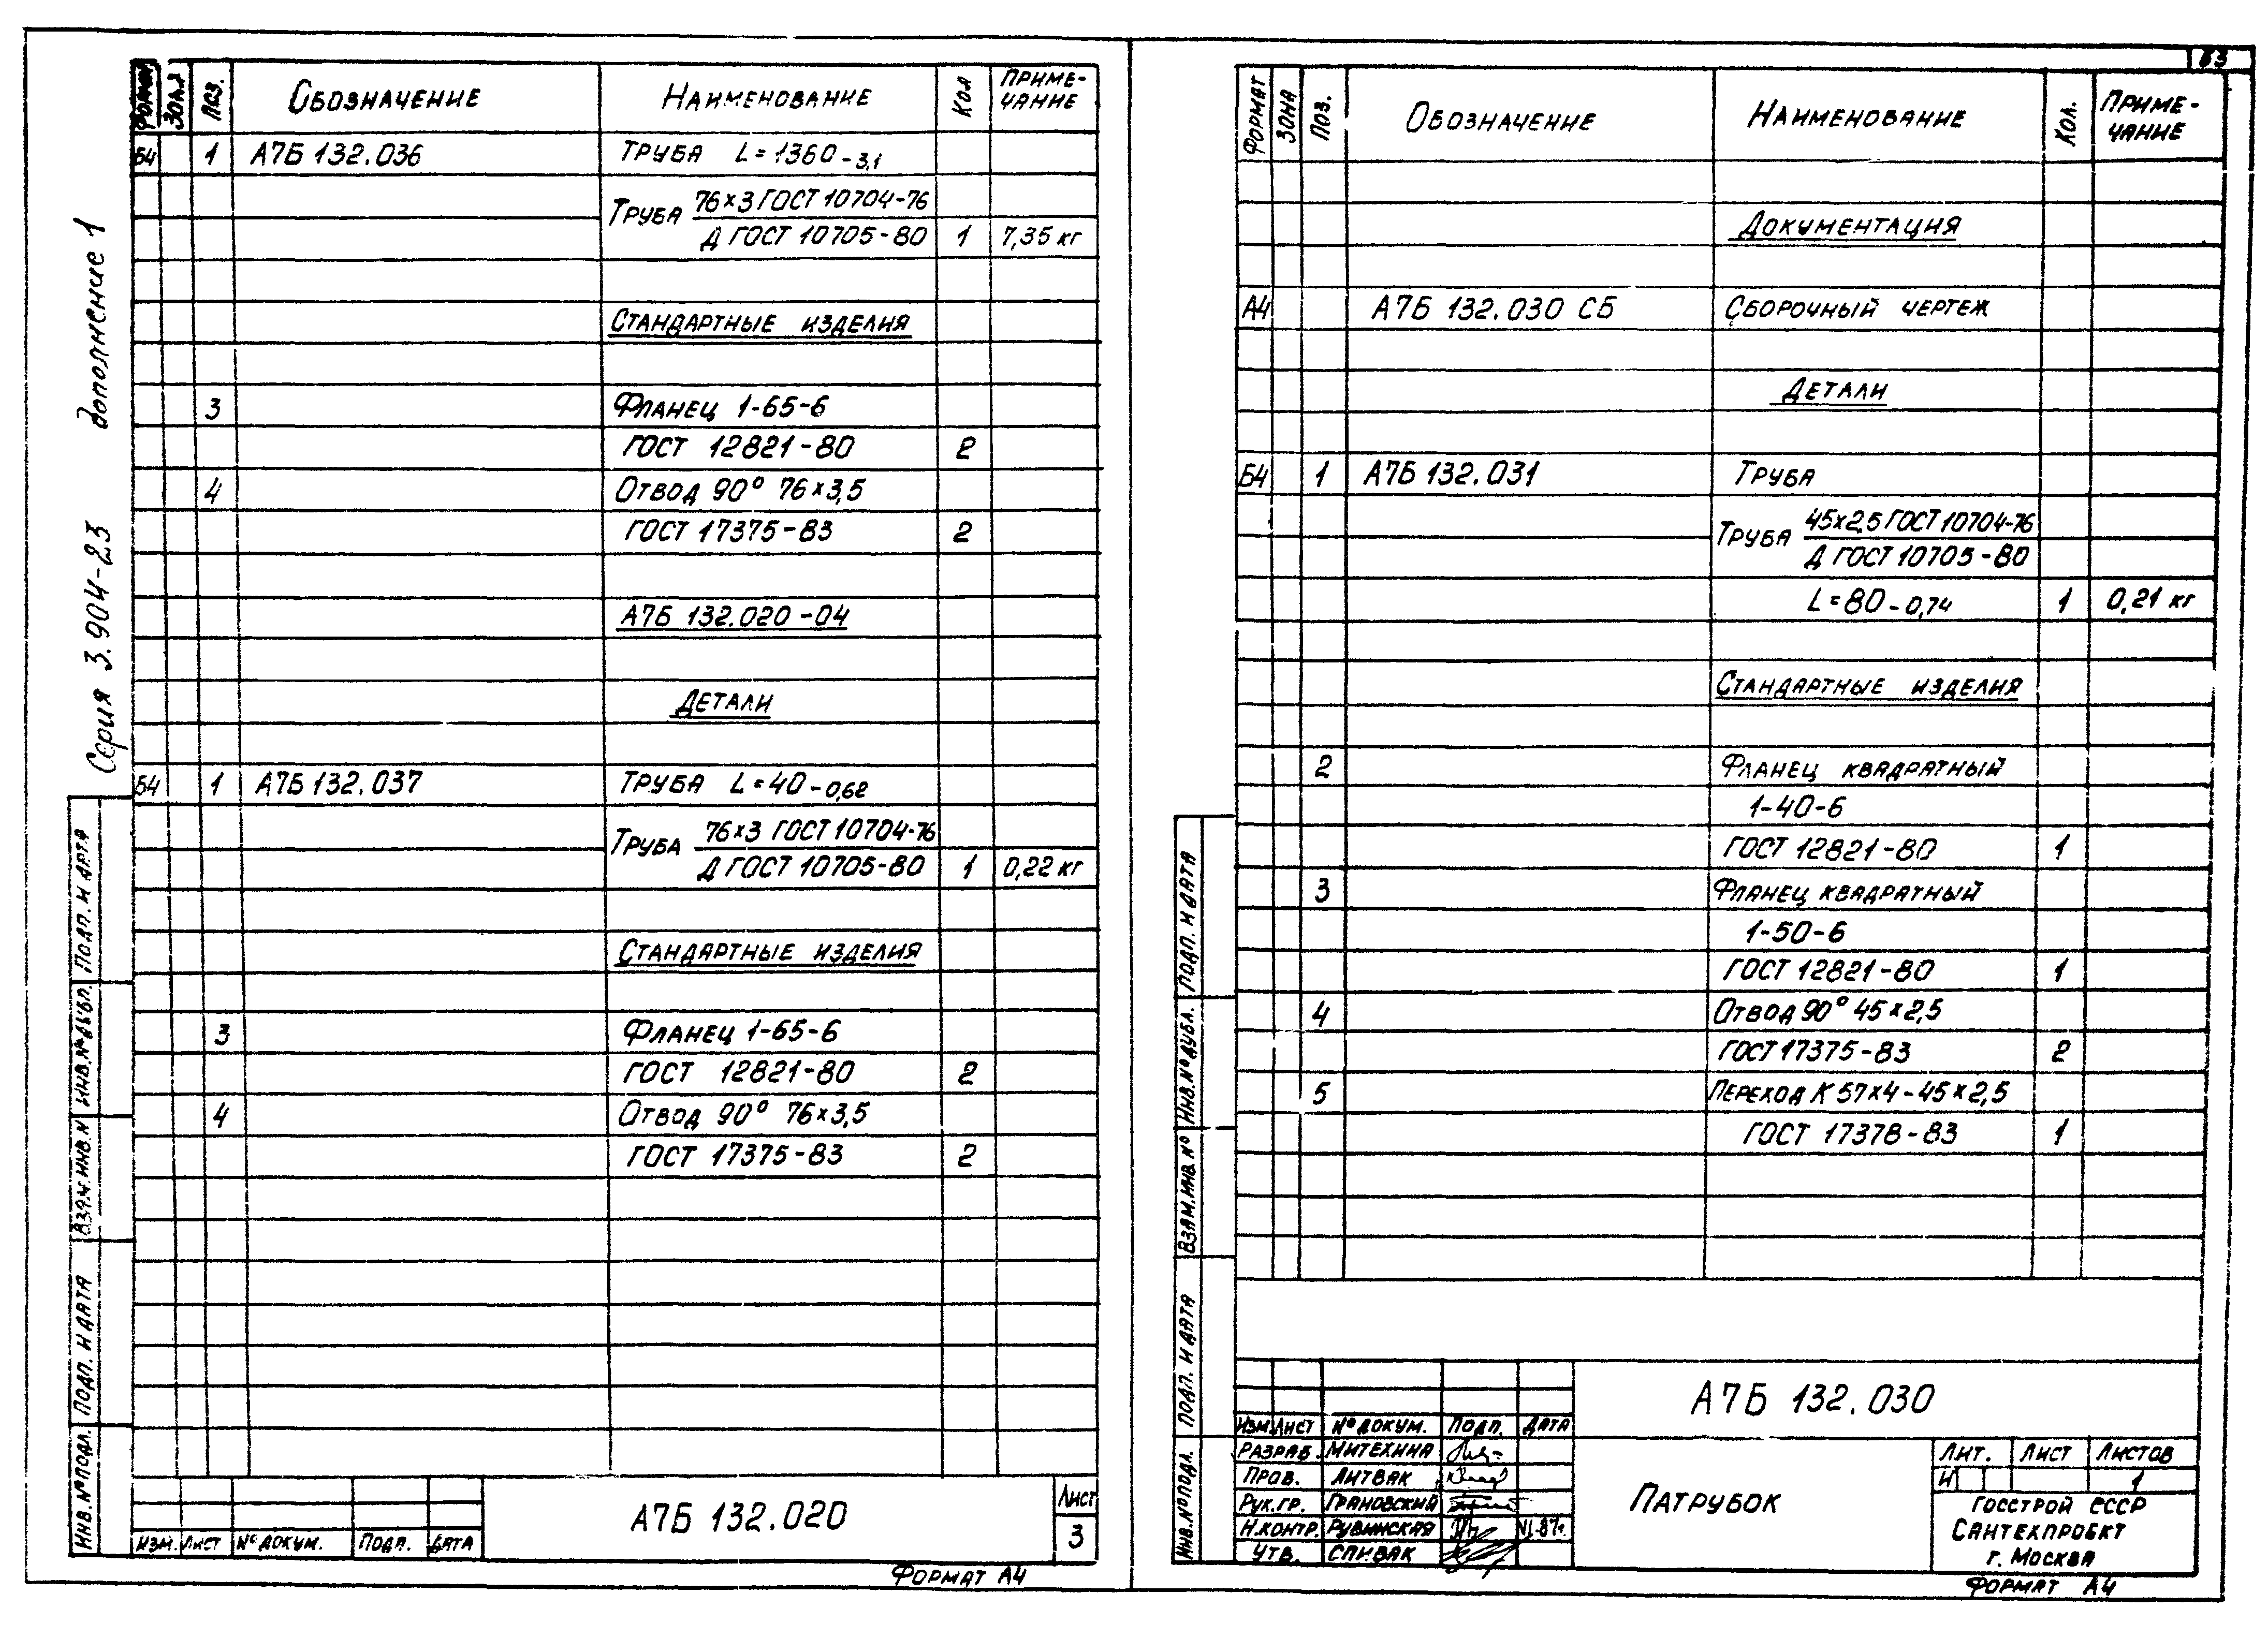 63
Серия 3.904-23 дополнение 1
Формат Зона Поз. Обозначение Наименование Кол Приме-
чание
Б4 1 А7Б 132.036 Труба L=1360-3,1
76×3 ГОСТ 10704-76
Труба
Д ГОСТ 10705-80 1 7,35 кг
Стандартные изделия
3 Фланец 1-65-6
ГОСТ 12821-80 2
4 Отвод 90° 76×3,5
ГОСТ 17375-83 2
А7Б 132.020-04
Детали
Б4 1 А7Б 132.037 Труба L=40-0,62
76×3 ГОСТ 10704-76
Труба
Д ГОСТ 10705-80 1 0,22 кг
Стандартные изделия
3 Фланец 1-65-6
ГОСТ 12821-80 2
4 Отвод 90° 76×3,5
ГОСТ 17375-83 2
Инв.№подл. Подп. и дата Взам.инв.№ Инв.№дубл. Подп. и дата
Изм. Лист №докум. Подп. Дата
А7Б 132.020
Лист
3
Формат А4
Формат Зона Поз. Обозначение Наименование Кол. Приме-
чание
Документация
А4 А7Б 132.030 СБ Сборочный чертеж
Детали
Б4 1 А7Б 132.031 Труба
45×2,5 ГОСТ 10704-76
Труба
Д ГОСТ 10705-80
L=80-0,74 1 0,21 кг
Стандартные изделия
2 Фланец квадратный
1-40-6
ГОСТ 12821-80 1
3 Фланец квадратный
1-50-6
ГОСТ 12821-80 1
4 Отвод 90° 45×2,5
ГОСТ 17375-83 2
5 Переход К 57×4-45×2,5
ГОСТ 17378-83 1
Инв.№подл. Подп. и дата Взам.инв.№ Инв.№дубл. Подп. и дата
А7Б 132.030
Изм. Лист №докум. Подп. Дата
Разраб. Митехина
Пров. Литвак
Рук.гр. Грановский
Н.контр. Рувинская VI-87г.
Утв. Спивак
Патрубок
Лит. Лист Листов
И 1
Госстрой СССР
Сантехпроект
г. Москва
Формат А4